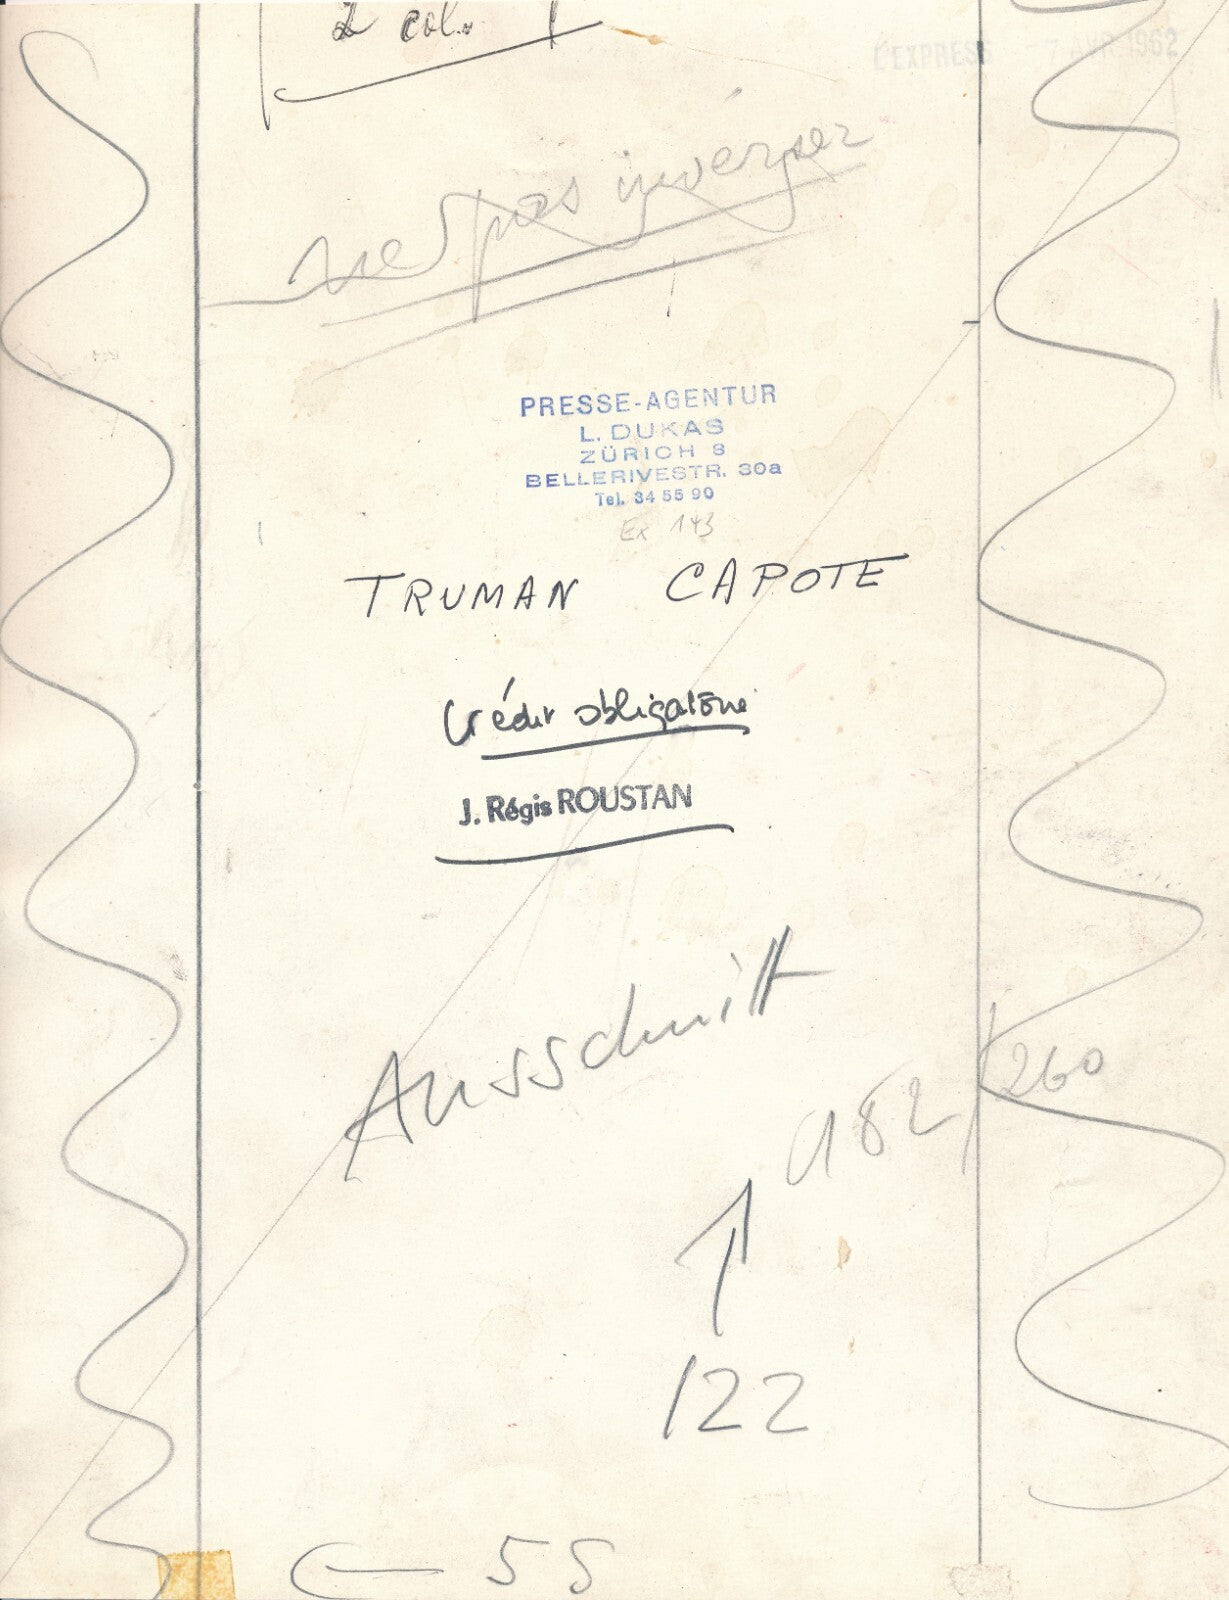 2 col.
L'EXPRESS 7 AVR. 1962
ne pas inverser
PRESSE-AGENTUR
L. DUKAS
ZÜRICH 8
BELLERIVESTR. 30a
Tel. 34 55 90
Ex 143
TRUMAN CAPOTE
Crédit obligatoire
J. Régis ROUSTAN
Ausschnitt
182/260
122
55